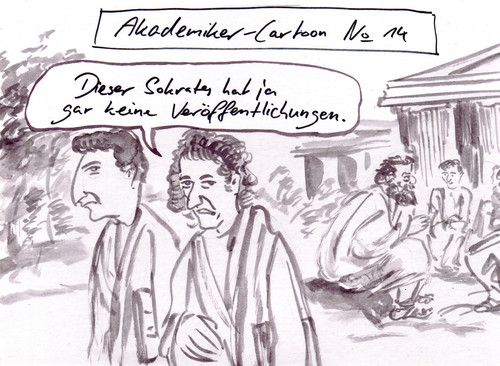 Akademiker-Cartoon No 14
Dieser Sokrates hat ja
gar keine Veröffentlichungen.